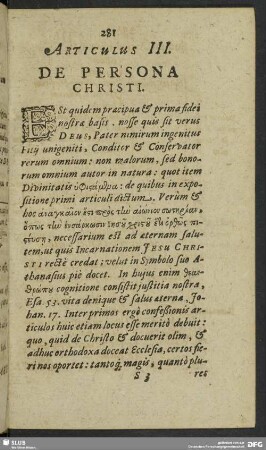 281
ARTICULUS III.
DE PERSONA
CHRISTI.
ESt quidem præcipua & prima fidei
nostræ basis, nosse quis sit verus
DEUS, Pater nimirum ingenitus
Filij unigeniti, Conditor & Conservator
rerum omnium: non malorum, sed bono-
rum omnium autor in natura: quot item
Divinitatis ὑφιστάμενα: de quibus in expo-
sitione primi articuli dictum. Verùm &
hoc ἀναγκαῖον ἐστι πρὸς τὴν αἰώνιον σωτηρίαν,
necessarium est ad æternam salu-
tem, ut quis Incarnationem JESU CHRI-
STI rectè credat; velut in Symbolo suo A-
thanasius piè docet. In hujus enim θεαν-
θρώπου cognitione consistit justitia nostra,
Esa. 53. vita denique & salus æterna, Jo-
han. 17. Inter primos ergò confessionis ar-
ticulos huic etiam locus esse meritò debuit:
quo, quid de Christo & docuerit olim, &
adhuc orthodoxa doceat Ecclesia, certos fie-
ri nos oportet: tantoq; magis, quantò plu-
S 3
res
SLUB